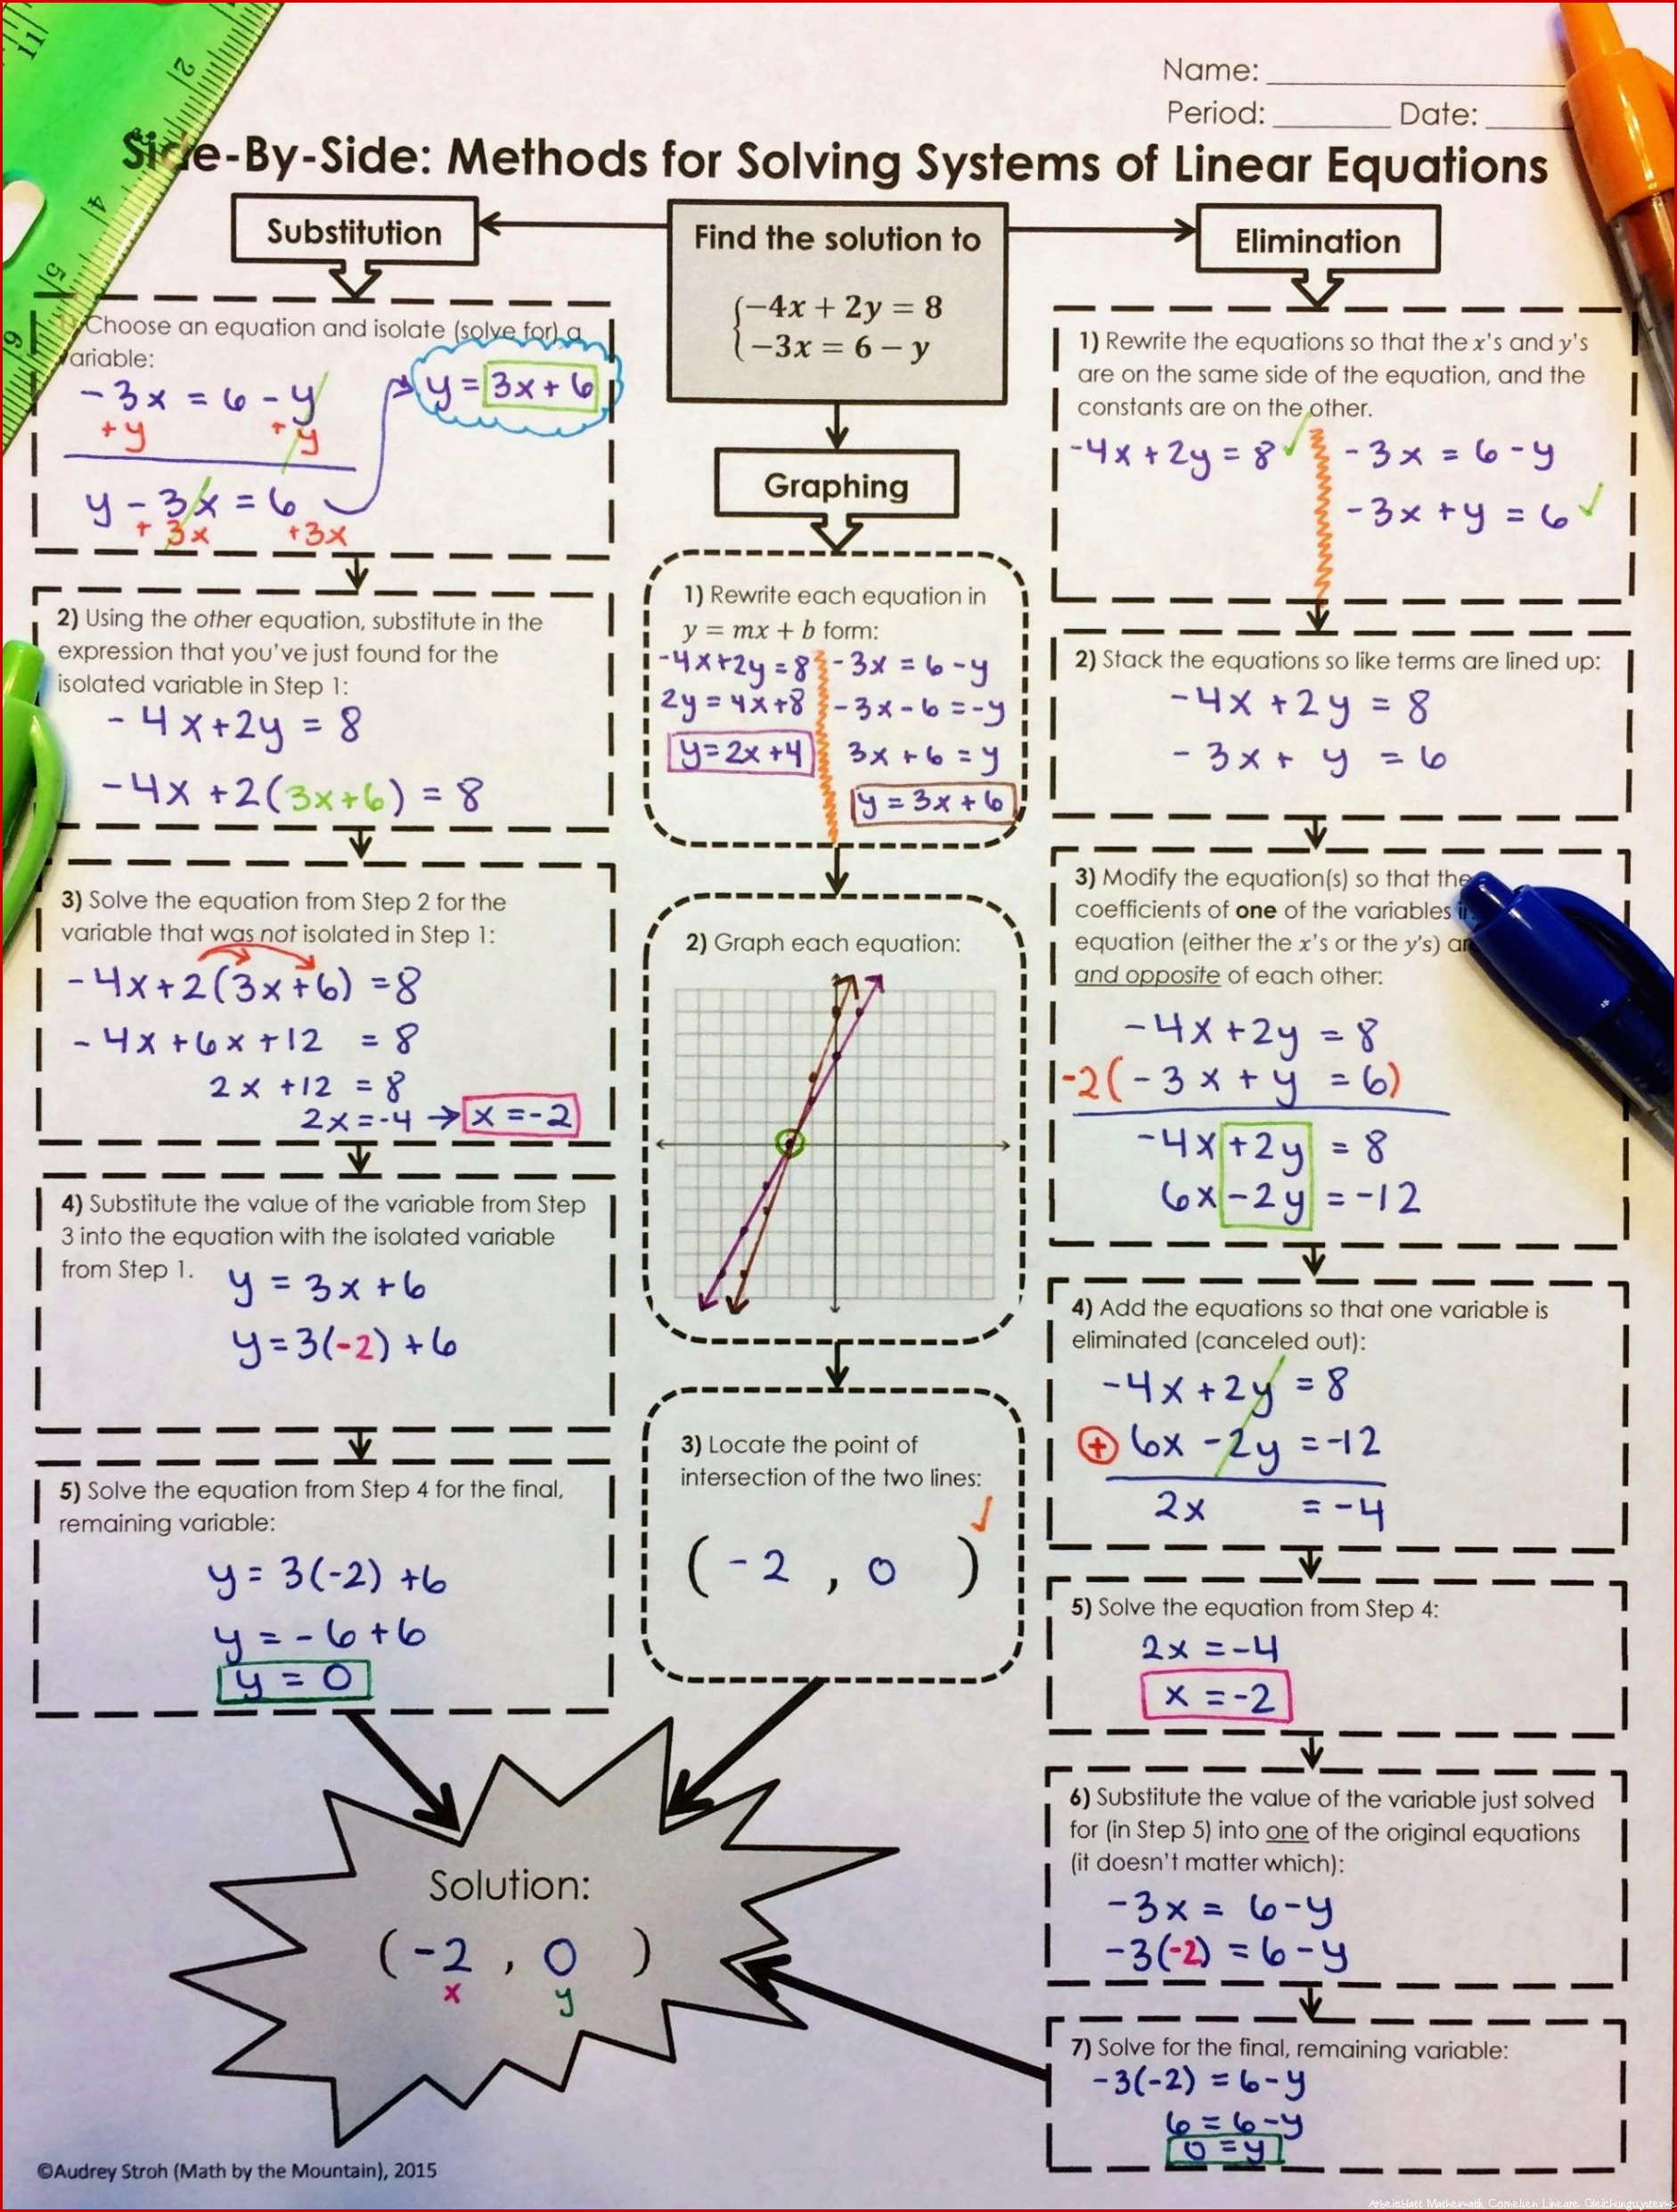 Name:
Period: Date:
Side-By-Side: Methods for Solving Systems of Linear Equations
Substitution
Find the solution to
-4x + 2y = 8
-3x = 6 - y
Elimination
Graphing
Choose an equation and isolate (solve for) a
variable:
-3x = 6 - y
+y +y
y - 3x = 6
+3x +3x
y = 3x + 6
2) Using the other equation, substitute in the
expression that you've just found for the
isolated variable in Step 1:
-4x+2y = 8
-4x +2(3x+6) = 8
3) Solve the equation from Step 2 for the
variable that was not isolated in Step 1:
-4x+2(3x+6) = 8
-4x+6x+12 = 8
2x +12 = 8
2x=-4 → x=-2
4) Substitute the value of the variable from Step
3 into the equation with the isolated variable
from Step 1.
y = 3x+6
y=3(-2)+6
5) Solve the equation from Step 4 for the final,
remaining variable:
y= 3(-2) +6
y = -6+6
y = 0
1) Rewrite each equation in
y = mx + b form:
-4x+2y=8
2y=4x+8
y=2x+4
-3x = 6-y
-3x-6=-y
3x+6=y
y=3x+6
2) Graph each equation:
3) Locate the point of
intersection of the two lines:
(-2, 0)
1) Rewrite the equations so that the x's and y's
are on the same side of the equation, and the
constants are on the other.
-4x+2y=8 ✓
-3x = 6-y
-3x+y = 6 ✓
2) Stack the equations so like terms are lined up:
-4x +2y = 8
-3x+ y = 6
3) Modify the equation(s) so that the
coefficients of one of the variables
equation (either the x's or the y's)
and opposite of each other:
-4x+2y = 8
-2(-3x+y = 6)
-4x+2y = 8
6x-2y = -12
4) Add the equations so that one variable is
eliminated (canceled out):
-4x+2y = 8
+ 6x -2y = -12
2x = -4
5) Solve the equation from Step 4:
2x = -4
x = -2
6) Substitute the value of the variable just solved
for (in Step 5) into one of the original equations
(it doesn't matter which):
-3x = 6-y
-3(-2) = 6-y
7) Solve for the final, remaining variable:
-3(-2) = 6-y
6 = 6-y
0 = y
Solution:
(-2, 0)
x y
©Audrey Stroh (Math by the Mountain), 2015
11
2
4
5
6
Arbeitsblatt Mathematik Cornelsen Lineare Gleichungssysteme